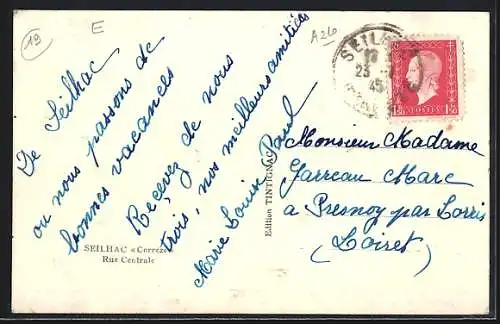 19
E
A26
De Seilhac
ou nous passons de
bonnes vacances
Recevez de nous
trois, nos meilleurs amitiés
Marie Louise Paul
SEILHAC «Corrèze»
Rue Centrale
Edition TINTIGNAC
SEILHAC
23
45
Monsieur Madame
Garreau Marc
a Presnoy par Lorris
(Loiret)